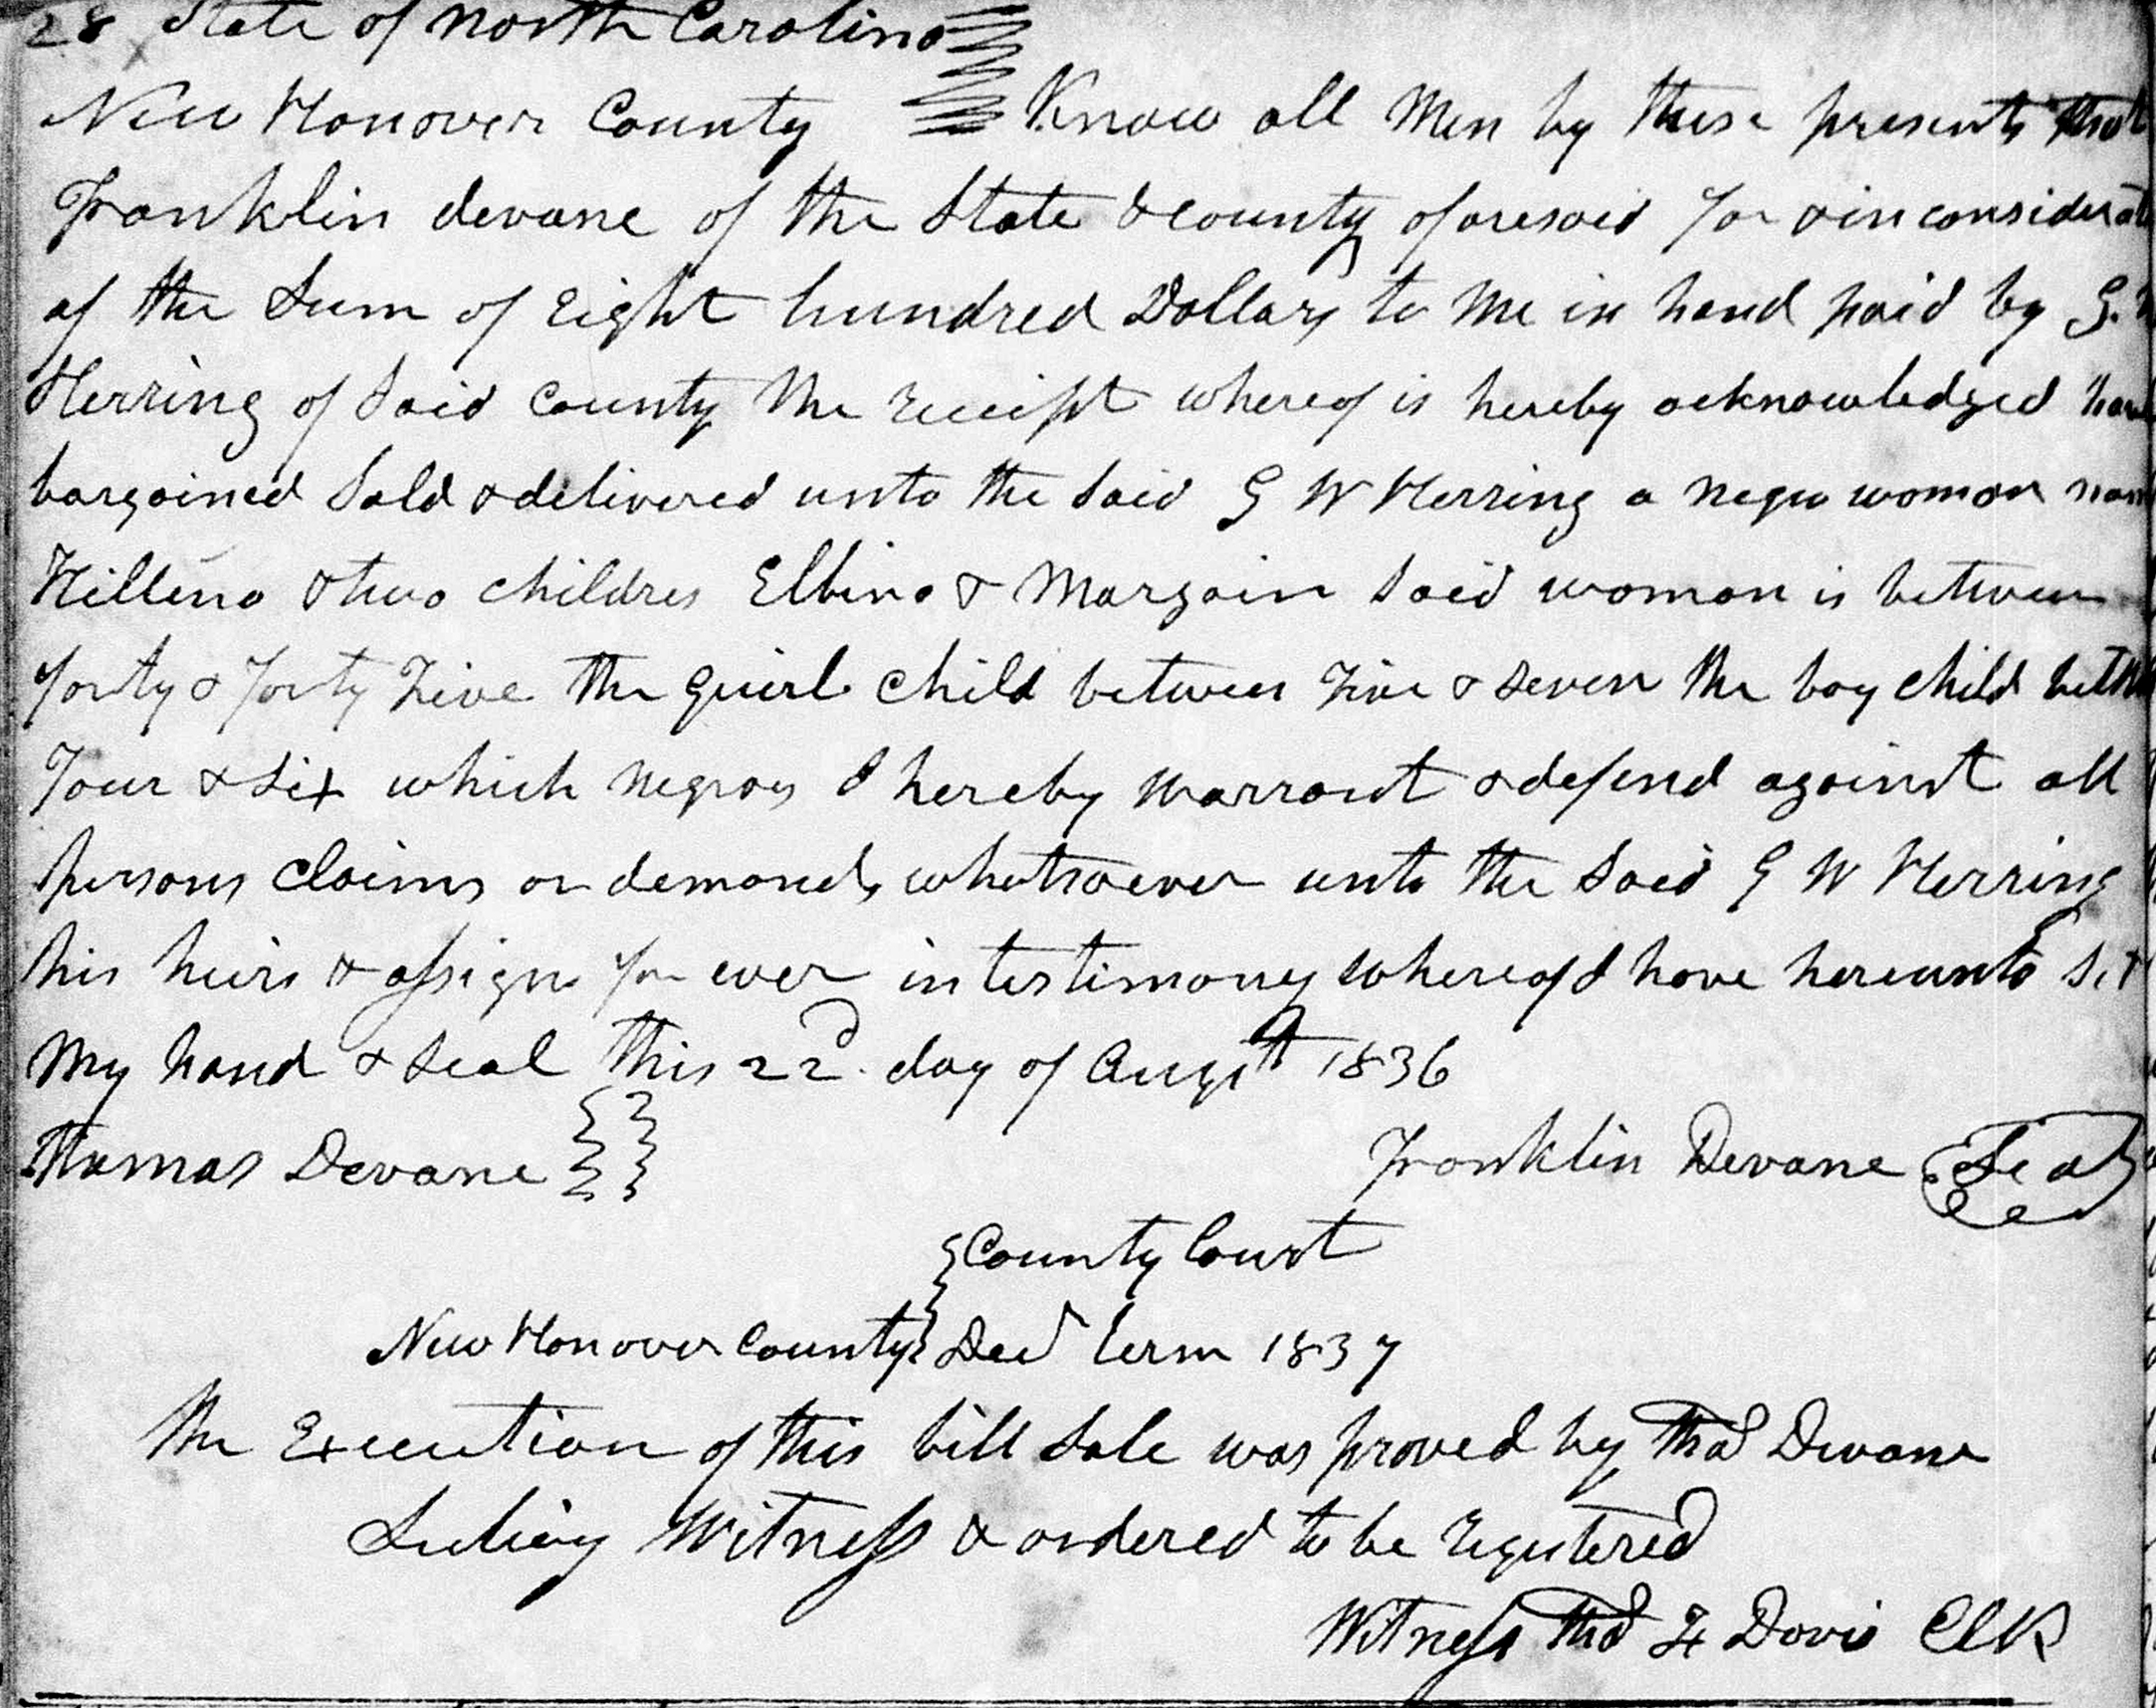 28 State of North Carolina
New Hanover County Know all Men by these presents that
Franklin devane of the State & County aforesaid for & in considerat
of the Sum of Eight hundred Dollars to me in hand paid by G.
Herring of Said County the receipt whereof is hereby acknowledged have
bargained Sold & delivered unto the Said G W Herring a negro woman nam
Hillena & two children Elbina & Margain Said woman is between
forty & forty Five the guirl child between Five & Seven the boy child betw
Four & Six which negros I hereby warrant & defend against all
persons claims or demands whatsoever unto the Said G W Herring
his heirs & assigns for ever in testimony whereof I have hereunto Set
My hand & Seal This 22d. day of Augst 1836
Thomas Devane Franklin Devane Seal
County Court
New Hanover County Decr Term 1837
The Execution of this bill Sale was proved by Thos Devane
Witness & ordered to be registered
Witness Thos F Davis Clk